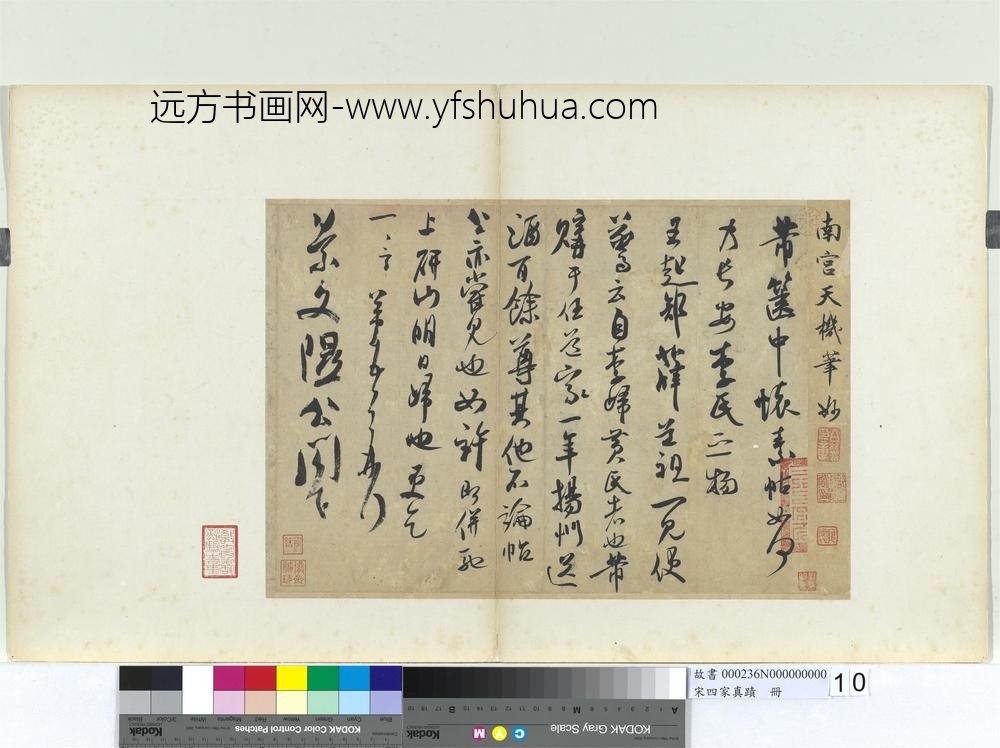 远方书画网-www.yfshuhua.com
南宮天機筆妙
芾篋中懷素帖如何
乃長安李氏之物
王起部薛道祖一見便
驚云自李歸黃氏者也芾
購于任道家一年揚州送
酒百餘尊其他不論帖
公亦嘗見也如許即併馳
上研山明日歸也更乞
一言 芾頓首再拜
景文隰公閣下
故書 000236N000000000
宋四家真蹟 冊
10
Blue Cyan Green Yellow Red Magenta White 3/Color Black
KODAK Color Control Patches
Kodak
KODAK Gray Scale
Kodak
C Y M
A 1 2 3 4 5 6 M 8 9 10 11 12 13 14 15 B 17 18 19